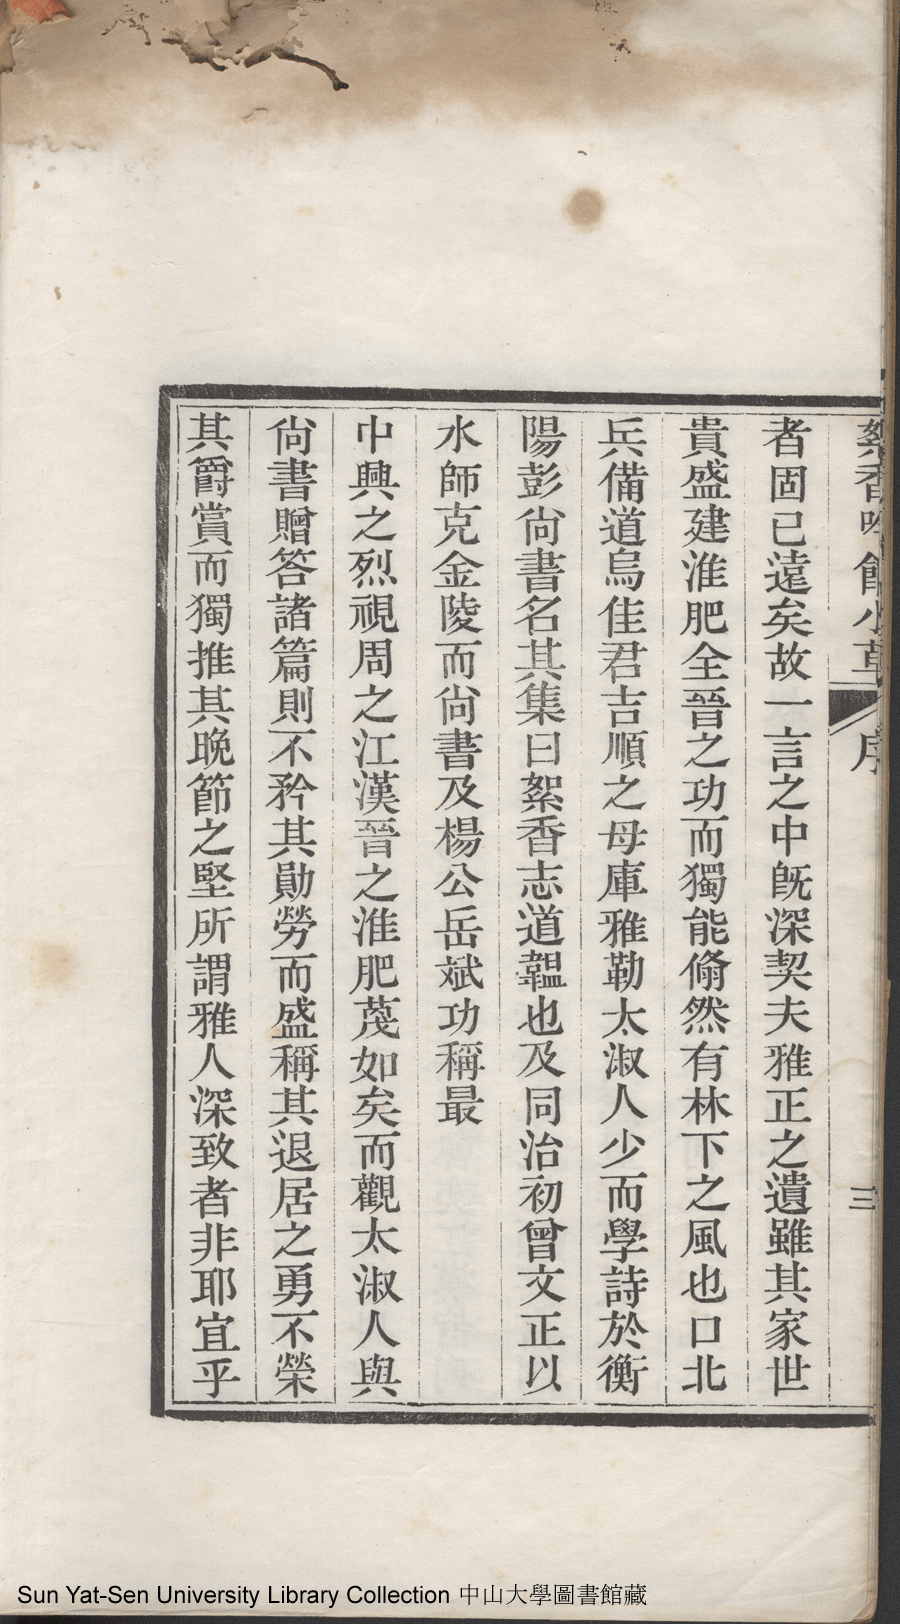 絮香吟館小草 序 三
者固已遠矣故一言之中旣深契夫雅正之遺雖其家世
貴盛建淮肥全晉之功而獨能翛然有林下之風也口北
兵備道烏佳君吉順之母庫雅勒太淑人少而學詩於衡
陽彭尙書名其集曰絮香志道韞也及同治初曾文正以
水師克金陵而尙書及楊公岳斌功稱最
中興之烈視周之江漢晉之淮肥蔑如矣而觀太淑人與
尙書贈答諸篇則不矜其勛勞而盛稱其退居之勇不榮
其爵賞而獨推其晚節之堅所謂雅人深致者非耶宜乎
Sun Yat-Sen University Library Collection 中山大學圖書館藏